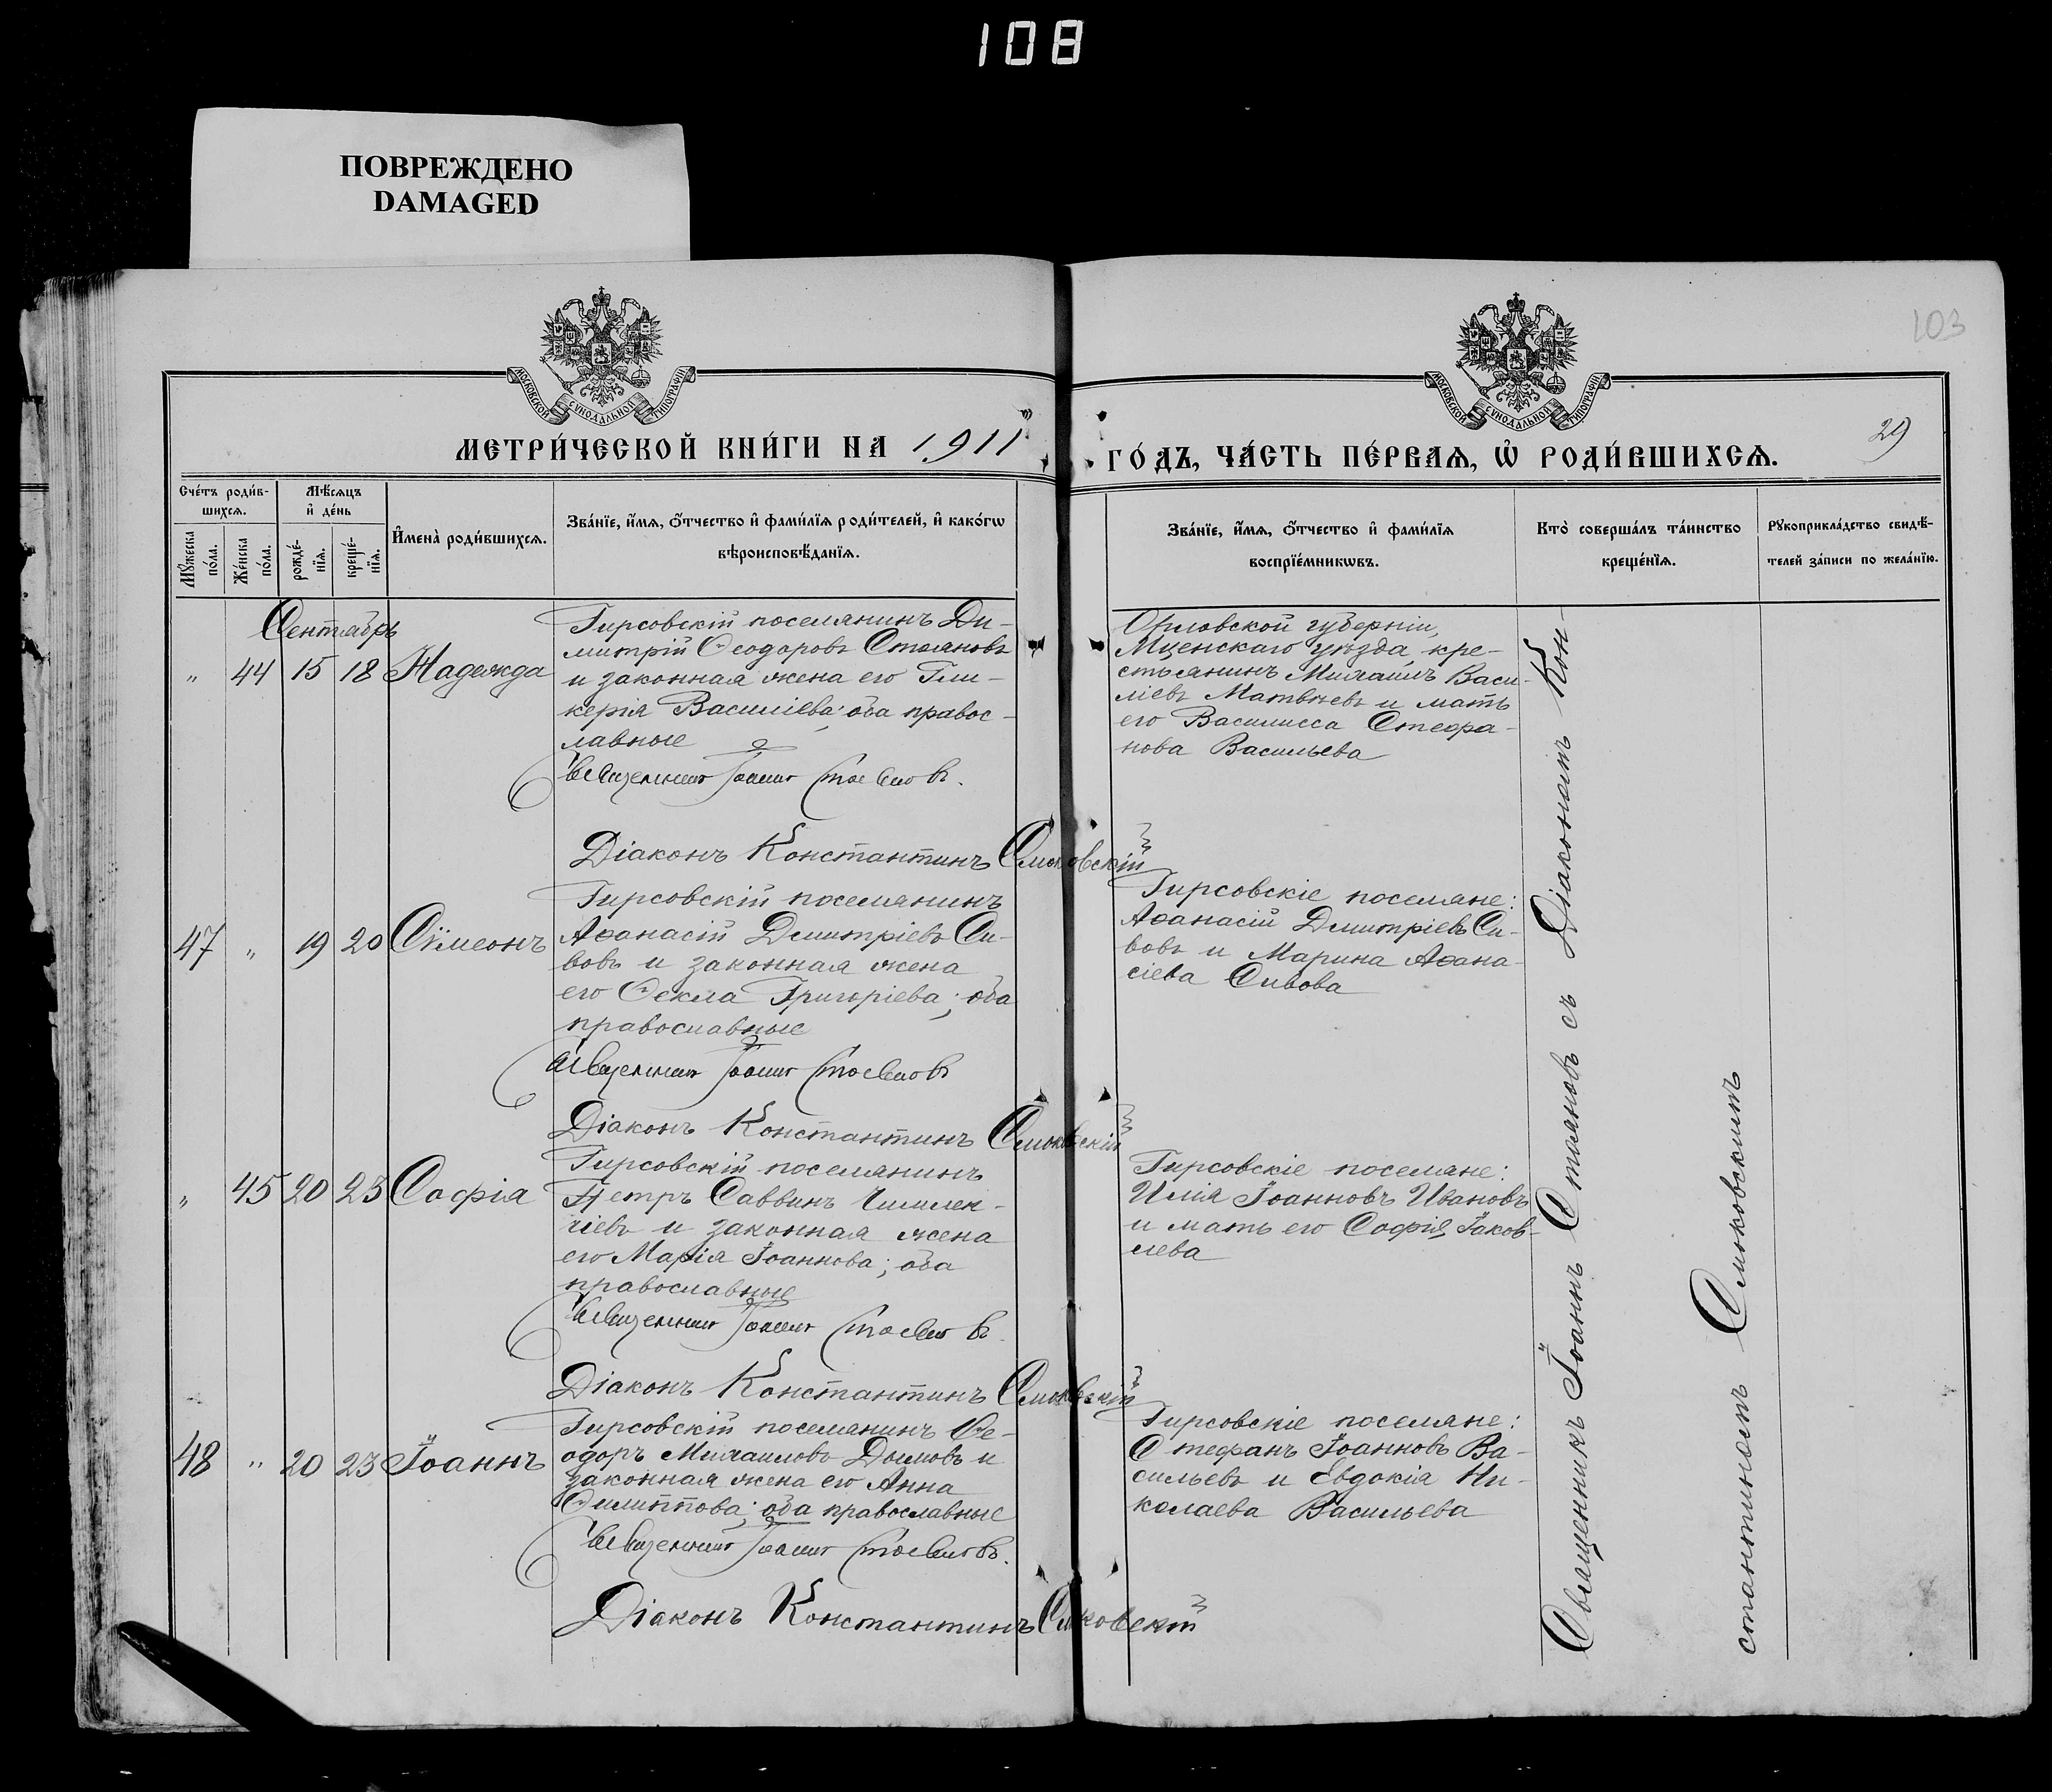 108
ПОВРЕЖДЕНО
DAMAGED
103
МОСКОВСКОЙ СѴНОДАЛЬНОЙ ТИПОГРАФІИ
МОСКОВСКОЙ СѴНОДАЛЬНОЙ ТИПОГРАФІИ
29
МЕТРИ́ЧЕСКОЙ КНИ́ГИ НА 1911
ГО́ДЪ, ЧА́СТЬ ПЕ́РВАѦ, Ѡ҆ РОДИ́ВШИХСѦ.
Сче́тъ роди́в-
шихсѧ.
Мꙋ́жеска по́ла.
Же́нска по́ла.
Мѣ́сѧцъ
и҆ де́нь
рожде́-
нїѧ.
креще́-
нїѧ.
И҆мена̀ роди́вшихсѧ.
Зва́нїе, и҆́мѧ, ѻ҆́тчество и҆ фами́лїѧ роди́телей, и҆ како́гѡ
вѣроисповѣ́данїѧ.
Зва́нїе, и҆́мѧ, ѻ҆́тчество и҆ фами́лїѧ
воспрїе́мникѡвъ.
Кто̀ соверша́лъ та́инство
креще́нїѧ.
Рꙋкоприкла́дство свидѣ́-
телей за́писи по жела́нїю.
Сентябрь
" 44 15 18 Надежда
Гирсовскій поселянинъ Ди-
митрій Ѳеодоровъ Стояновъ
и законная жена его Гли-
керія Василіева; оба правос-
лавные
Священникъ Іоаннъ Стояновъ.
Діаконъ Константинъ Смоковскій
Орловской губерніи,
Мценскаго уѣзда кре-
стьянинъ Михаилъ Васи-
ліевъ Матвѣевъ и мать
его Василисса Стефа-
нова Васильева
47 " 19 20 Сѷмеонъ
Гирсовскій поселянинъ
Аѳанасій Димитріевъ Си-
вовъ и законная жена
его Ѳекла Григоріева; оба
православные
Священникъ Іоаннъ Стояновъ
Діаконъ Константинъ Смоковскій
Гирсовскіе поселяне:
Аѳанасій Димитріевъ Си-
вовъ и Марина Аѳана-
сіева Сивова
" 45 20 23 Софія
Гирсовскій поселянинъ
Петръ Саввинъ Чимлек-
чіевъ и законная жена
его Марія Іоаннова; оба
православные
Священникъ Іоаннъ Стояновъ.
Діаконъ Константинъ Смоковскій
Гирсовскіе поселяне:
Илія Іоанновъ Ивановъ
и мать его Софія Іаков-
лева
48 " 20 23 Іоаннъ
Гирсовскій поселянинъ Ѳе-
одоръ Михаиловъ Дымовъ и
законная жена его Анна
Филиппова; оба православные
Священникъ Іоаннъ Стояновъ.
Діаконъ Константинъ Смоковскій
Гирсовскіе поселяне:
Стефанъ Іоанновъ Ва-
сильевъ и Евдокія Ни-
колаева Васильева
Священникъ Іоаннъ Стояновъ съ Діакономъ Кон-
стантиномъ Смоковскимъ